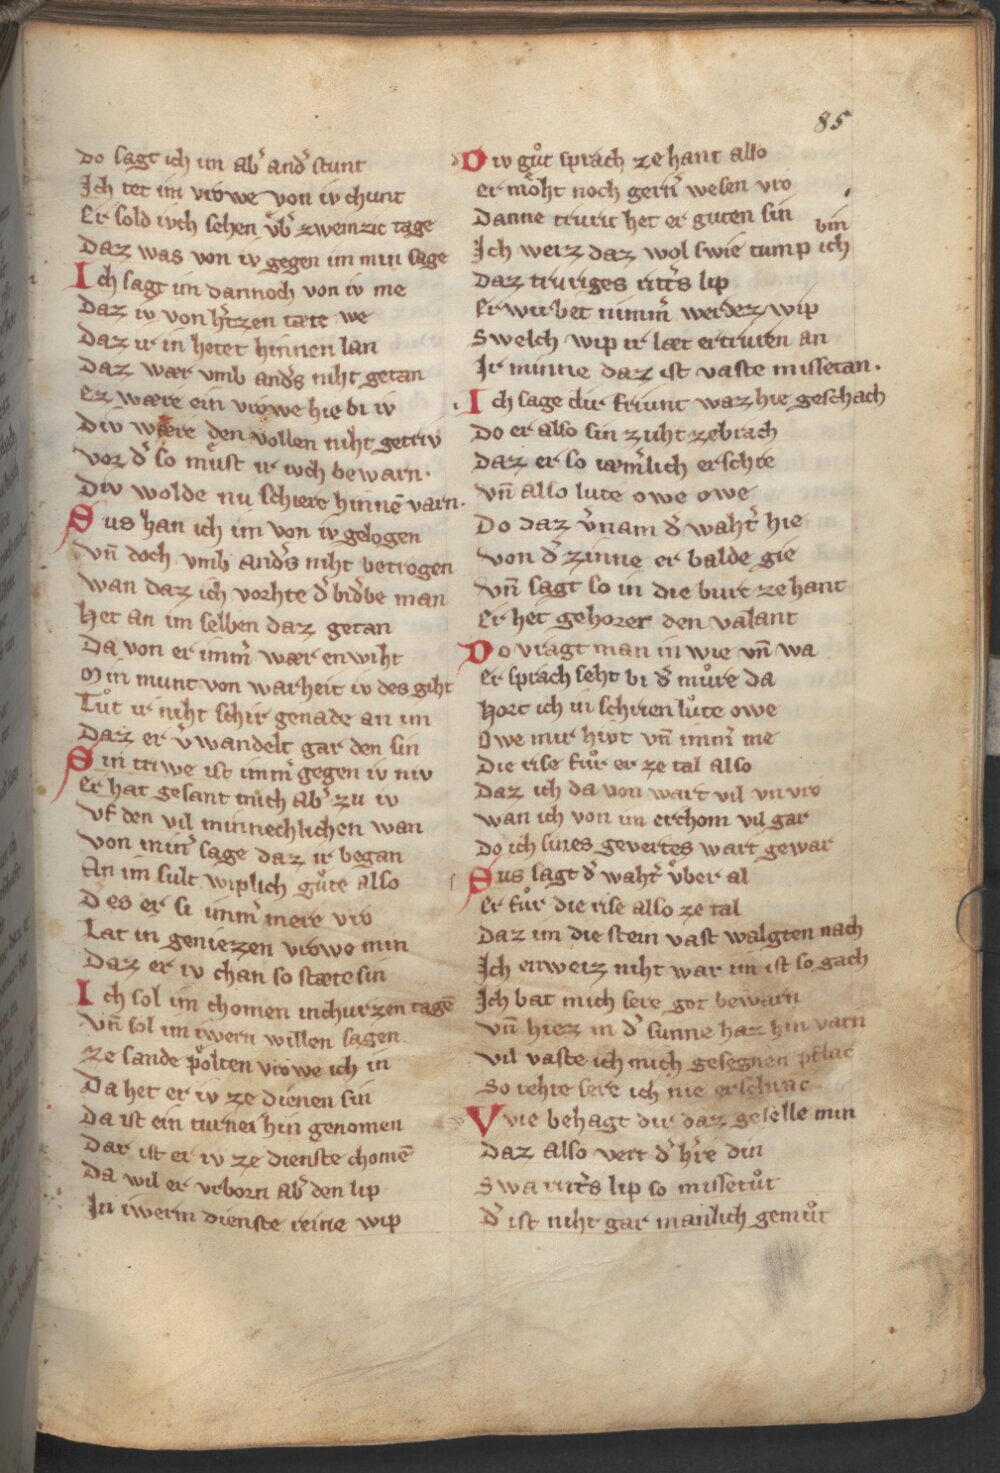 85
Do sagt ich im ab̾ and̾ stunt
Ich tet im vrowe von iv chunt
Er sold ivch sehen v̾b̾ zweinzic tage
Daz was von iv gegen im min sage
Ich sagt im dannoch von iv me
Daz iv von h̾tzen tate we
Daz ir in hetet hinnen lan
Daz wær vmb and̾s niht getan
Ez wære ein vrowe hie bi iv
Div wære den vollen niht getriv
Vor d̾ so muͦst ir ivch bewarn.
Div wolde nu schiere hinnē varn.
Sus han ich im von iv gelogen
Vn̄ doch vmb and̾s niht betrogen
Wan daz ich vorhte d̾ bid̾be man
Het an im selben daz getan
Da von er imm̾ wær enwiht
Min munt von warheit iv des giht
Tuͦt ir niht schir genade an im
Daz er v̾wandelt gar den sin
Sin triwe ist imm̾ gegen iv niv
Er hat gesant mich ab̾ zu iv
Vf den vil minnechlichen wan
Von min̾ sage daz ir began
An im sult wiplich guͤte also
Des er si imm̾ mere vro
Lat in geniezzen vrowe min
Daz er iv chan so stæte sin
Ich sol im chomen inchurzen tagē
Vn̄ sol im iwern willen sagen
Ze sande poͤlten vrowe ich in
Da het er iv ze dienen sin
Da ist ein turnei hin genomen
Dar ist er iv ze dienste chomē
Da wil er vrborn ab̾ den lip
In iwerm dienste reine wip
Div guͦt sprach ze hant also
Er moͤht noch gern̾ wesen vro
Danne truric het er guten sin
Ich weiz daz wol swie tump ich bin
Daz truriges ritt̾s lip
Erwirbet nimm̾ werdez wip
Swelch wip ir læt ertruren an
Ir minne daz ist vaste missetan.
Ich sage dir friunt waz hie geschach
Do er also sin zuht zebrach
Daz er so iæm̾lich erschre
Vn̄ also lute owe owe
Do daz v̾nam d̾ waht̾ hie
Von d̾ zinne er balde gie
Vn̄ sagt so in die burc ze hant
Er het gehoret den valant
Do vragt man in wie vn̄ wa
Er sprach seht bi d̾ muͦre da
Hort ich in schrien luͦte owe
Owe mir hivt vn̄ imm̾ me
Die rise fuͦr er ze tal also
Daz ich da von wart vil vnvro
Wan ich von im erchom vil gar
Do ich sines gevertes wart gewar
Sus sagt d̾ waht̾ v̾ber al
Er fuͦr die rise also ze tal
Daz im die stein vast walgten nach
Ich enweiz niht war im ist so gach
Ich bat mich sere got bewarn
Vn̄ hiez in d̾ sunne haz hin varn
Vil vaste ich mich gesegnen pflac
So rehte sere ich nie erschrac
Wie behagt dir daz geselle min
Daz also vert d̾ h̾re din
Swa ritt̾s lip so missetuͦt
D̾ ist niht gar manlich gemuͦt